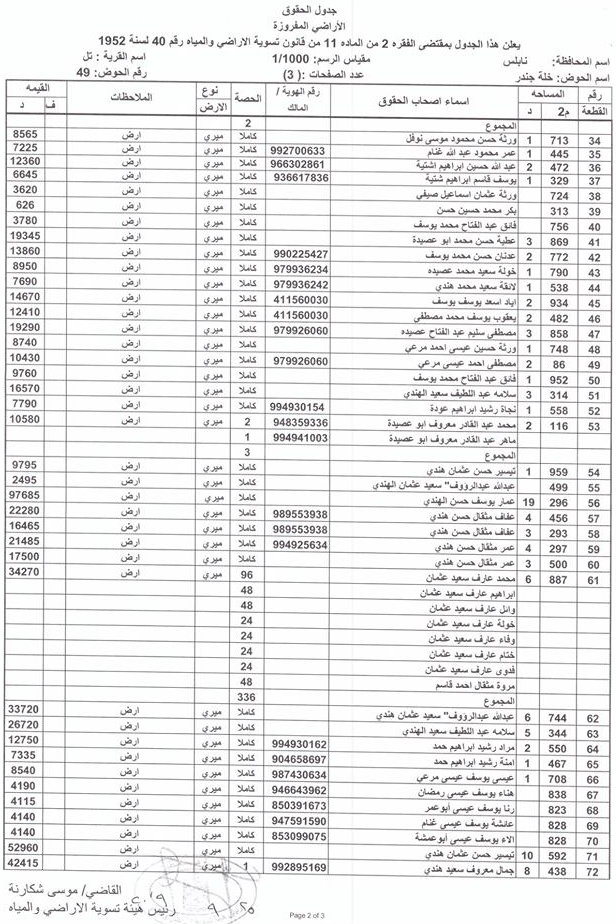 جدول الحقوق
الأراضي المفروزة
يعلن هذا الجدول بمقتضى الفقره 2 من الماده 11 من قانون تسوية الاراضي والمياه رقم 40 لسنة 1952
اسم المحافظة: نابلس مقياس الرسم: 1/1000 اسم القرية : تل
اسم الحوض: خلة جندر عدد الصفحات :( 3) رقم الحوض: 49
رقم القطعة المساحه م2 د اسماء اصحاب الحقوق رقم الهوية / المالك الحصة نوع الارض الملاحظات القيمه ف د
المجموع 2
34 713 1 ورثة حسن محمود موسى نوفل كاملا ميري ارض 8565
35 445 1 عمر محمود عبد الله غنام 992700633 كاملا ميري ارض 7225
36 472 2 عبد الله حسين ابراهيم اشتية 966302861 كاملا ميري ارض 12360
37 329 1 يوسف قاسم ابراهيم شتية 936617836 كاملا ميري ارض 6645
38 724 ورثة عثمان اسماعيل صيفي كاملا ميري ارض 3620
39 313 بكر محمد حسين حسن كاملا ميري ارض 626
40 756 فائق عبد الفتاح محمد يوسف كاملا ميري ارض 3780
41 869 3 عطية حسن محمد ابو عصيدة كاملا ميري ارض 19345
42 772 2 عدنان حسن محمد يوسف 990225427 كاملا ميري ارض 13860
43 790 1 خولة سعيد محمد عصيده 979936234 كاملا ميري ارض 8950
44 538 1 لائقة سعيد محمد هندي 979936242 كاملا ميري ارض 7690
45 934 2 اياد اسعد يوسف يوسف 411560030 كاملا ميري ارض 14670
46 482 2 يعقوب يوسف محمد مصطفى 411560030 كاملا ميري ارض 12410
47 858 3 مصطفى سليم عبد الفتاح عصيده 979926060 كاملا ميري ارض 19290
48 748 1 ورثة حسين عيسى احمد مرعي كاملا ميري ارض 8740
49 86 2 مصطفى احمد عيسى مرعي 979926060 كاملا ميري ارض 10430
50 952 1 فائق عبد الفتاح محمد يوسف كاملا ميري ارض 9760
51 314 3 سلامه عبد اللطيف سعيد الهندي كاملا ميري ارض 16570
52 558 1 نجاة رشيد ابراهيم عودة 994930154 كاملا ميري ارض 7790
53 116 2 محمد عبد القادر معروف ابو عصيدة 948359336 2 ميري ارض 10580
ماهر عبد القادر معروف ابو عصيدة 994941003 1
المجموع 3
54 959 1 تيسير حسن عثمان هندي كاملا ميري ارض 9795
55 499 عبدالله عبدالرووف" سعيد عثمان الهندي كاملا ميري ارض 2495
56 296 19 عمار يوسف حسن الهندي كاملا ميري ارض 97685
57 456 4 عفاف مثقال حسن هندي 989553938 كاملا ميري ارض 22280
58 293 3 عفاف مثقال حسن هندي 989553938 كاملا ميري ارض 16465
59 297 4 عمر مثقال حسن هندي 994925634 كاملا ميري ارض 21485
60 500 3 عمر مثقال حسن هندي كاملا ميري ارض 17500
61 887 6 محمد عارف سعيد عثمان 96 ميري ارض 34270
ابراهيم عارف سعيد عثمان 48
وائل عارف سعيد عثمان 48
خولة عارف سعيد عثمان 24
وفاء عارف سعيد عثمان 24
ختام عارف سعيد عثمان 24
فدوى عارف سعيد عثمان 24
مروة مثقال احمد قاسم 48
المجموع 336
62 744 6 عبدالله عبدالرووف" سعيد عثمان هندي كاملا ميري ارض 33720
63 344 5 سلامه عبد اللطيف سعيد الهندي كاملا ميري ارض 26720
64 550 2 مراد رشيد ابراهيم حمد 994930162 كاملا ميري ارض 12750
65 467 1 امنة رشيد ابراهيم حمد 904658697 كاملا ميري ارض 7335
66 708 1 عيسى يوسف عيسى مرعي 987430634 كاملا ميري ارض 8540
67 838 هناء يوسف عيسى رمضان 946643962 كاملا ميري ارض 4190
68 823 رنا يوسف عيسى ابوعمر 850391673 كاملا ميري ارض 4115
69 828 عائشة يوسف عيسى غنام 947591590 كاملا ميري ارض 4140
70 828 الاء يوسف عيسى ابوعمشة 853099075 كاملا ميري ارض 4140
71 592 10 تيسير حسن عثمان هندي كاملا ميري ارض 52960
72 438 8 جمال معروف سعيد هندي 992895169 1 ميري ارض 42415
القاضي/ موسى شكارنة
رئيس هيئة تسوية الاراضي والمياه
Page 2 of 3